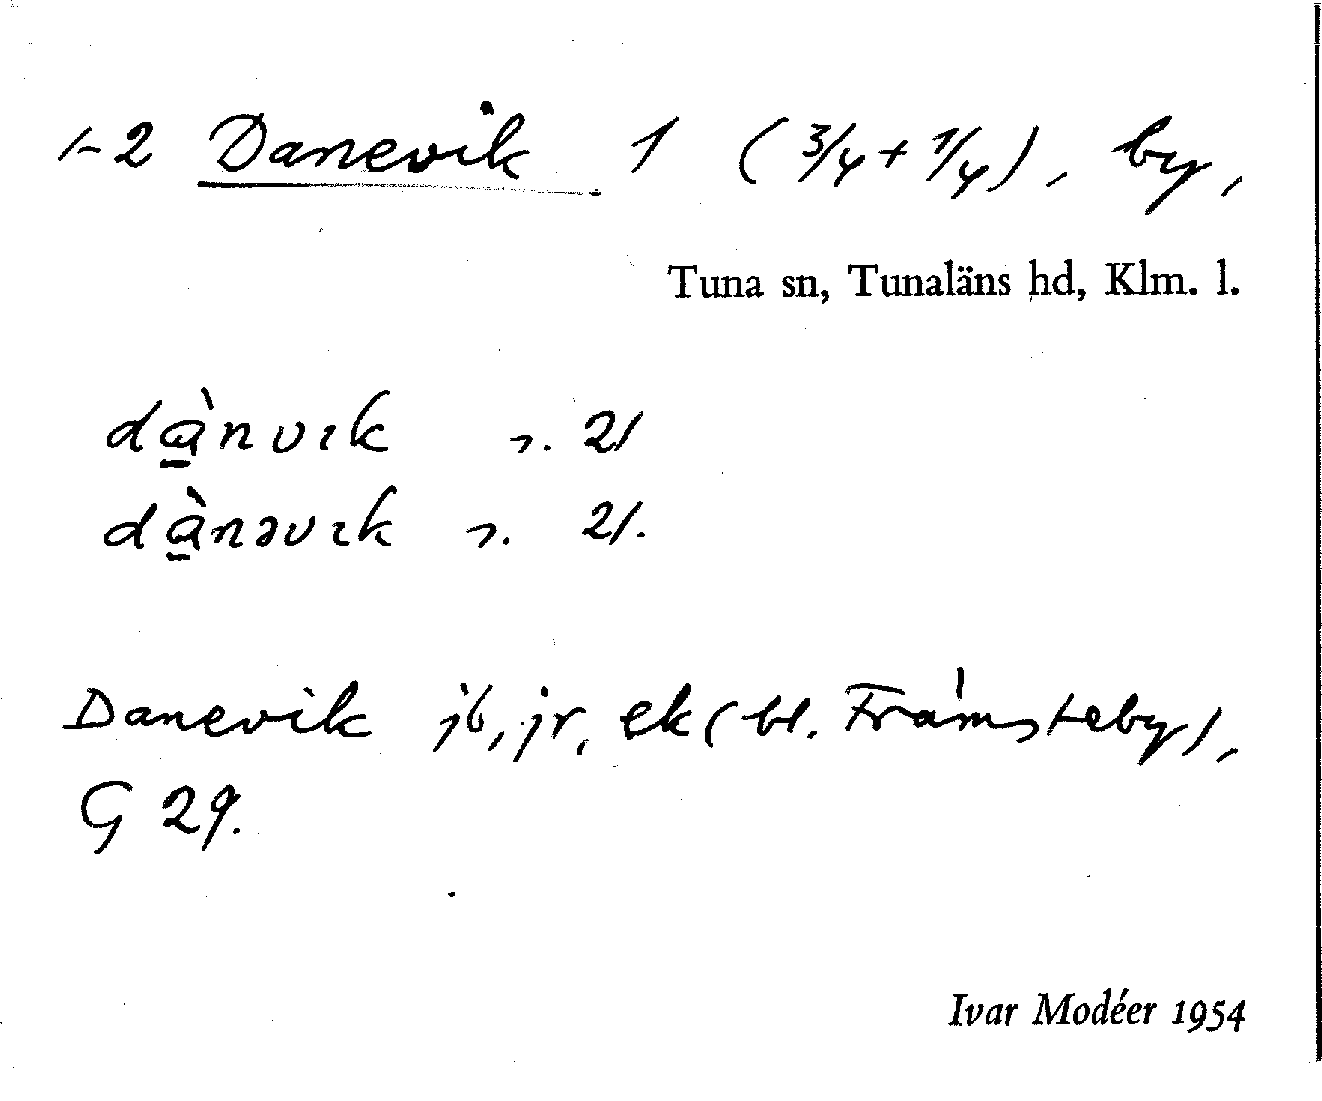 1-2 Danevik 1 (3/4 + 1/4), by,
Tuna sn, Tunaläns hd, Klm. l.
dà̠nvɪk s. 21
dà̠nəvɪk s. 21.
Danevik jb, jr, ek (bl. Främsteby),
G 29.
Ivar Modéer 1954